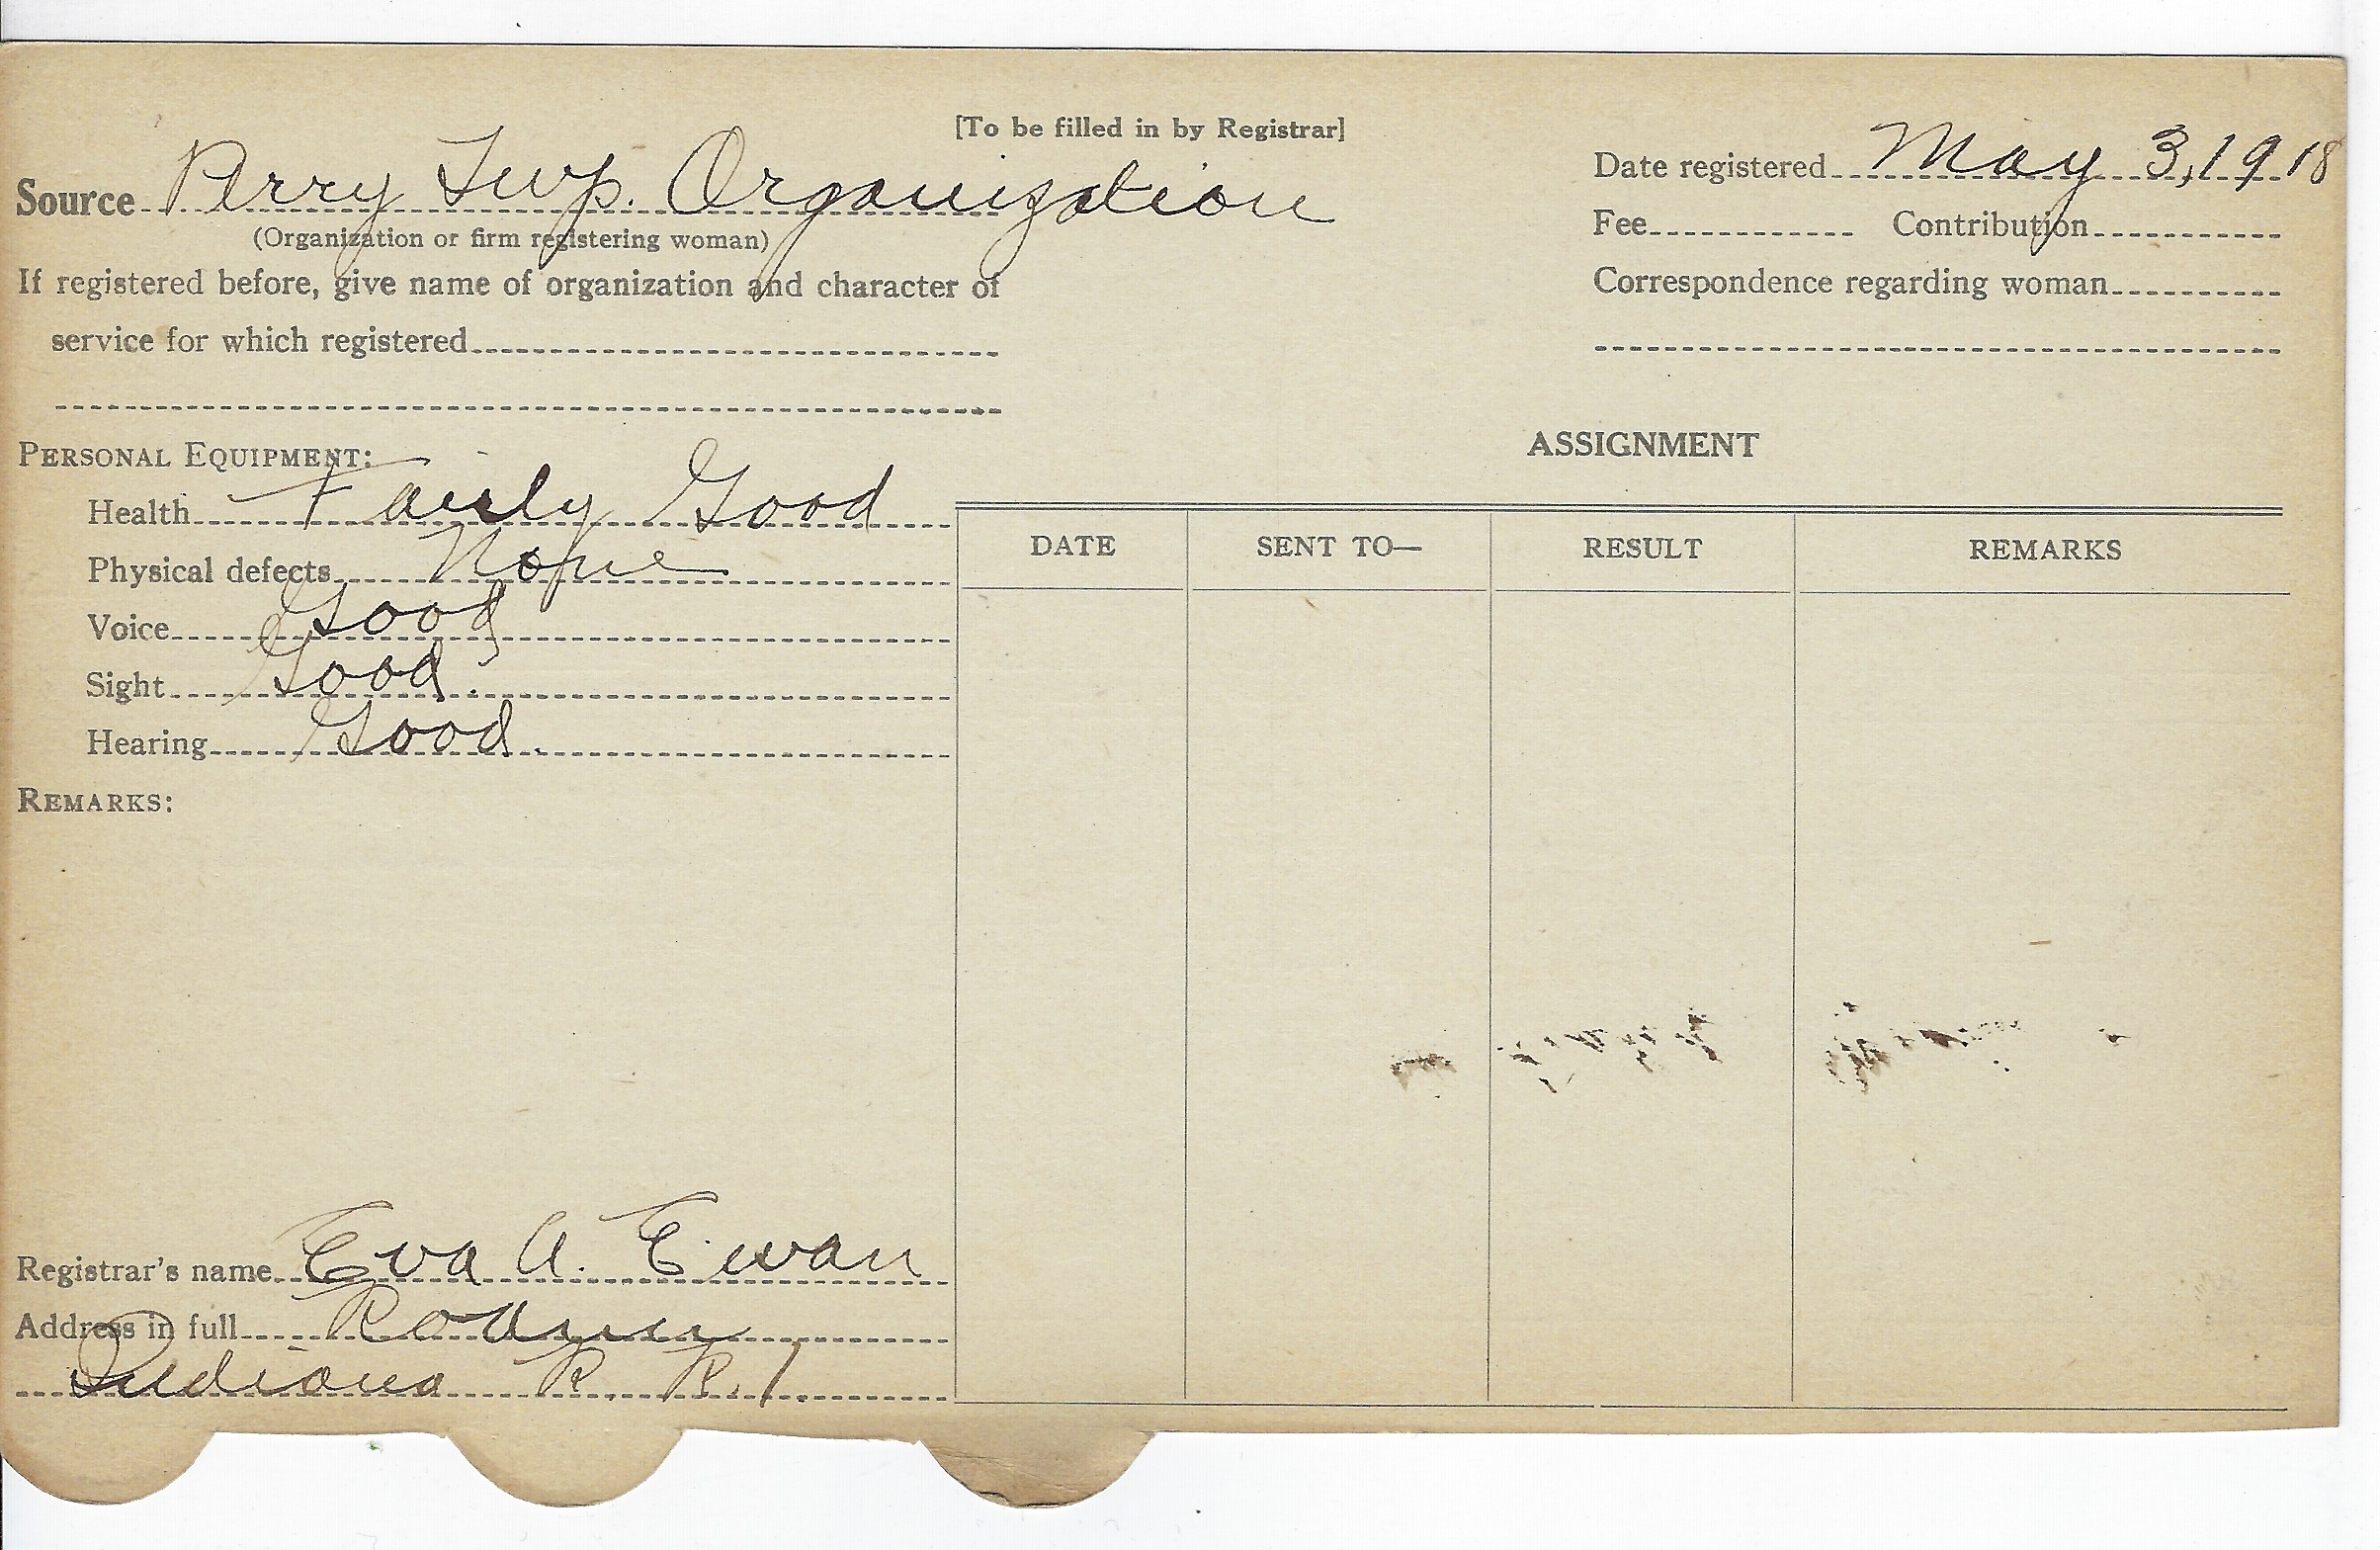 [To be filled in by Registrar]
Source Perry Twp. Organization
(Organization or firm registering woman)
If registered before, give name of organization and character of
service for which registered
Date registered May 3, 1918
Fee Contribution
Correspondence regarding woman
PERSONAL EQUIPMENT:
Health Fairly Good
Physical defects None
Voice Good
Sight Good.
Hearing Good.
REMARKS:
ASSIGNMENT
DATE SENT TO— RESULT REMARKS
Registrar's name Eva A. Ewan
Address in full
Indiana R. R. 1.